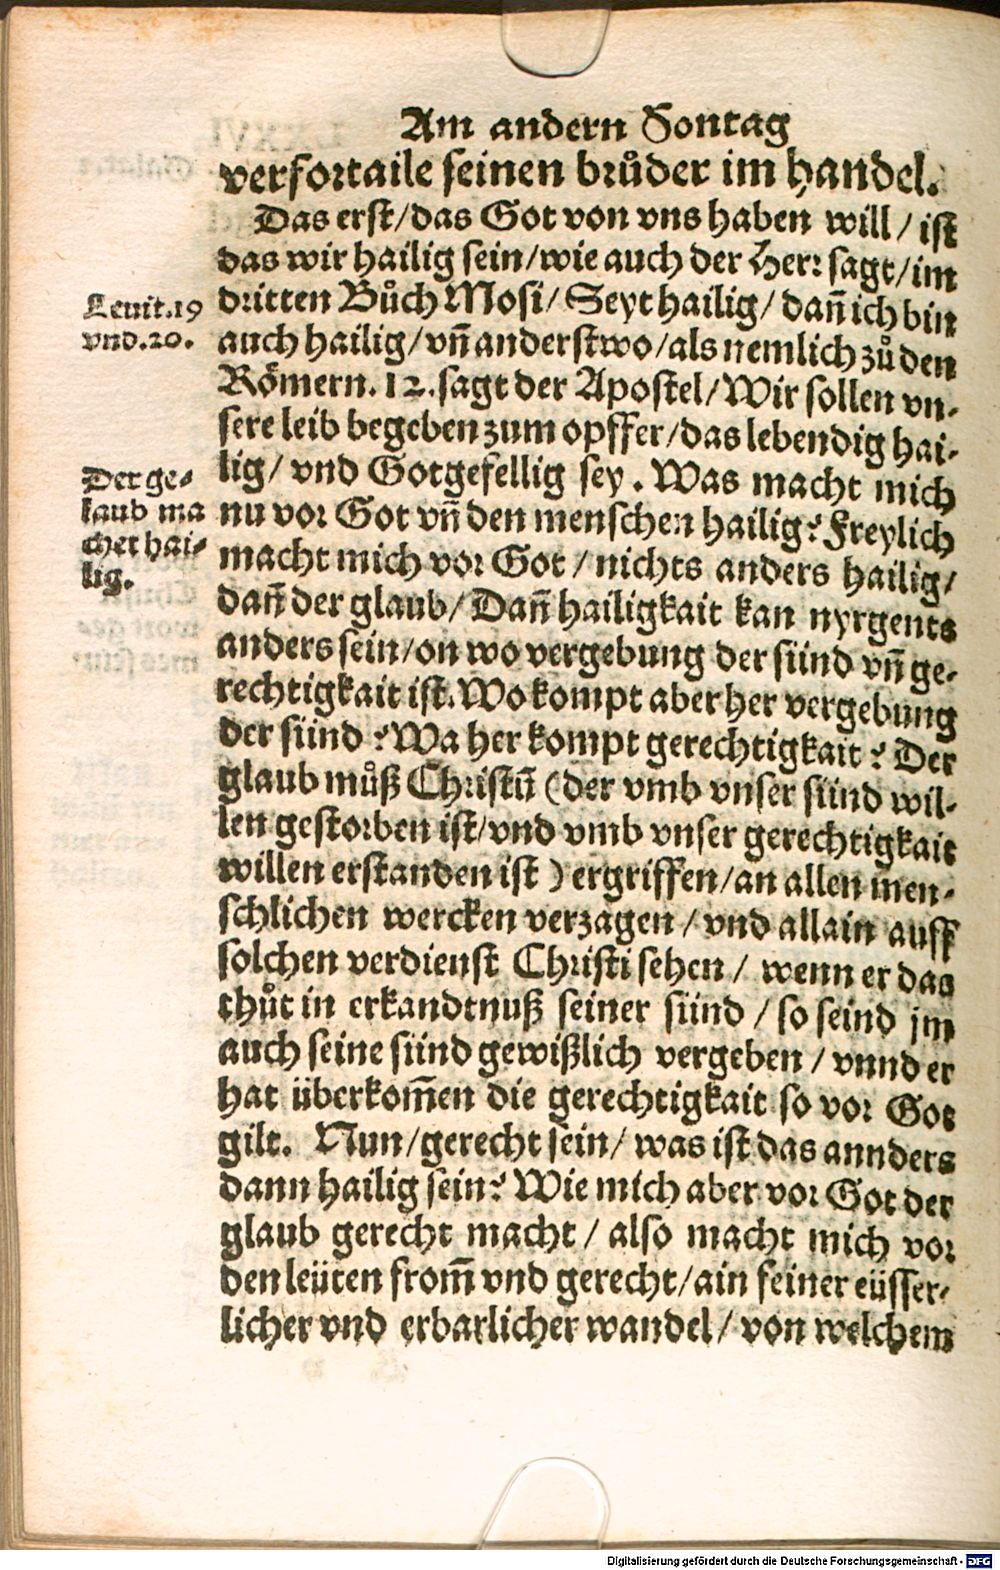 Am andern Sontag
verfortaile seinen bruͦder im handel.
Das erst/das Got von vns haben will/ist
das wir hailig sein/wie auch der Herr sagt/im
Leuit.19
vnd.20.
dritten Buͦch Mosi/Seyt hailig/dañ ich bin
auch hailig/vñ anderstwo/als nemlich zuͦ den
Roͤmern.12.sagt der Apostel/Wir sollen vn-
sere leib begeben zum opffer/das lebendig hai-
Der ge-
laub ma
chet hai-
lig.
lig/vnd Gotgefellig sey. Was macht mich
nu vor Got vñ den menschen hailig? Freylich
macht mich vor Got/nichts anders hailig/
dañ der glaub/Dañ hailigkait kan nyrgents
anders sein/on wo vergebung der sünd vñ ge-
rechtigkait ist. Wo kompt aber her vergebung
der sünd? Wa her kompt gerechtigkait? Der
glaub muͦß Christū (der vmb vnser sünd wil-
len gestorben ist/vnd vmb vnser gerechtigkait
willen erstanden ist) ergriffen/an allen men-
schlichen wercken verzagen/vnd allain auff
solchen verdienst Christi sehen/wenn er das
thuͦt in erkandtnuß seiner sünd/so seind jm
auch seine sünd gewißlich vergeben/vnnd er
hat überkom̄en die gerechtigkait so vor Got
gilt. Nun/gerecht sein/was ist das annders
dann hailig sein? Wie mich aber vor Got der
glaub gerecht macht/also macht mich vor
den leüten from̄ vnd gerecht/ain feiner eüsser-
licher vnd erbarlicher wandel/von welchem
Digitalisierung gefördert durch die Deutsche Forschungsgemeinschaft - DFG